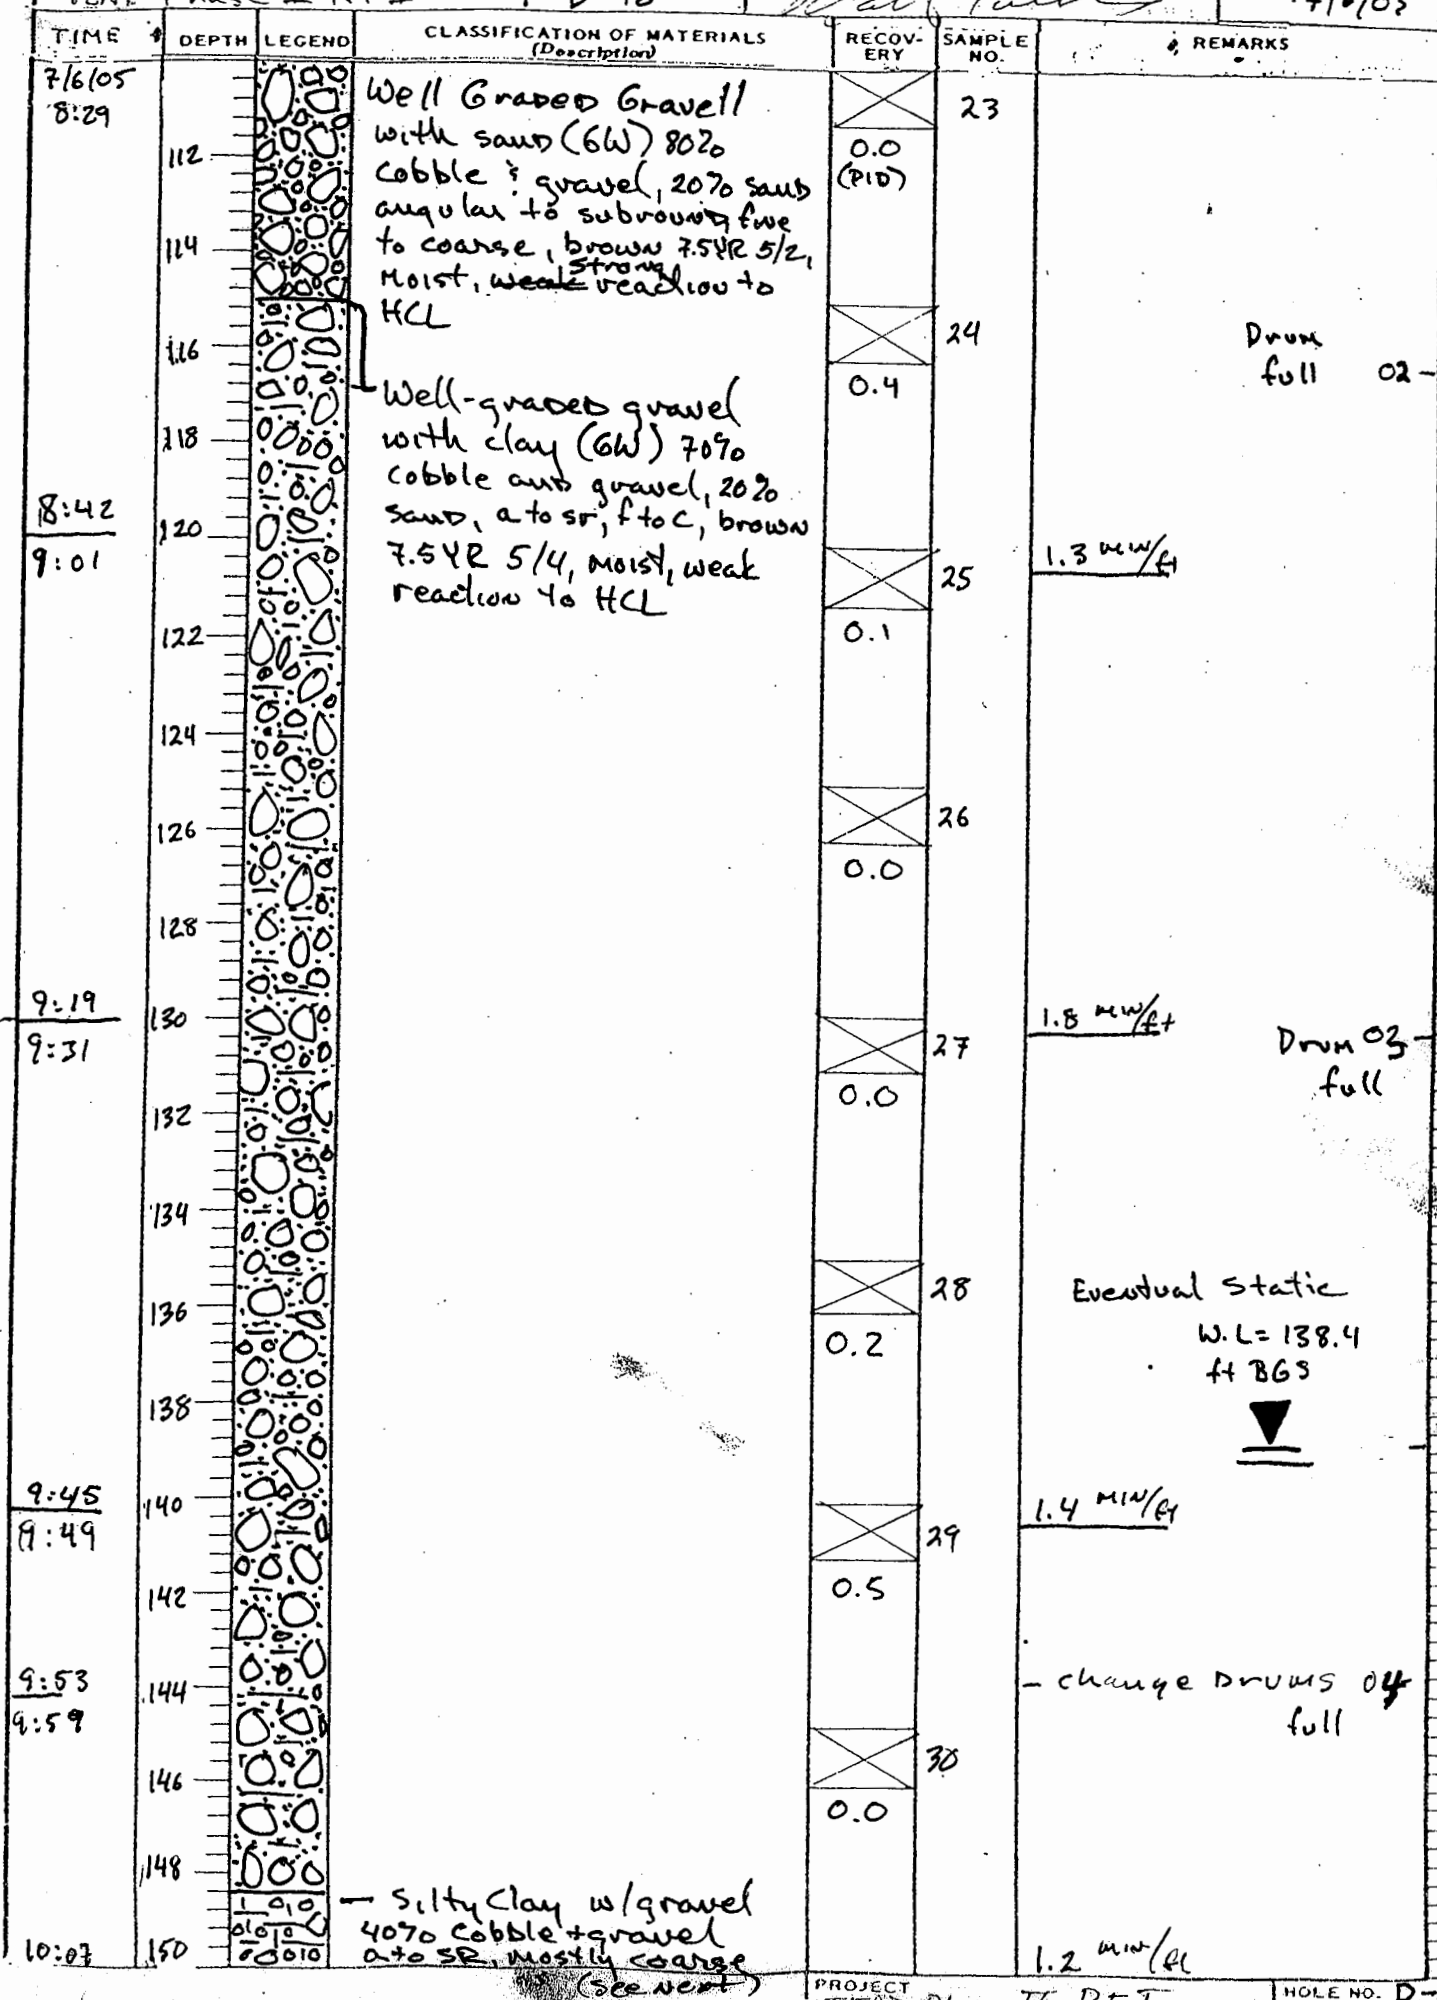 TIME DEPTH LEGEND CLASSIFICATION OF MATERIALS (Description) RECOV-ERY SAMPLE NO. REMARKS
7/6/05
8:29
Well Graded Gravell
with sand (GW) 80%
cobble & gravel, 20% sand
angular to subround, fine
to coarse, brown 7.5YR 5/2,
Moist, weak strong reaction to
HCL
23
0.0
(PID)
112
114
24
0.4
Drum
full 02
116
Well-graded gravel
with clay (GW) 70%
cobble and gravel, 20%
sand, a to sr, f to c, brown
7.5YR 5/4, moist, weak
reaction to HCL
118
8:42
9:01
120
25
0.1
1.3 MIN/ft
122
124
126
26
0.0
128
9:19
9:31
130
27
0.0
1.8 MIN/ft
Drum 03
full
132
134
136
28
0.2
Eventual Static
W.L= 138.4
ft BGS
138
9:45
9:49
140
29
0.5
1.4 MIN/ft
142
9:53
9:59
144
- Change Drums 04
full
146
30
0.0
148
- Silty Clay w/gravel
40% Cobble + gravel
a to SR, mostly coarse
(see next)
10:07
150
1.2 min/ft
PROJECT
HOLE NO. D-